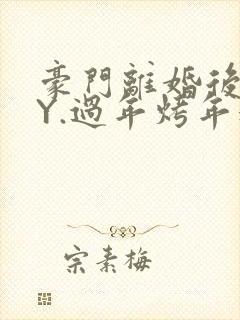 豪門離婚後
Y.過年烤年
宗素梅